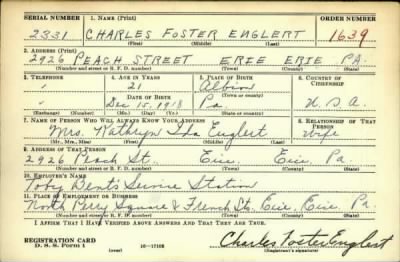 SERIAL NUMBER 1. NAME (Print) ORDER NUMBER
2331 CHARLES FOSTER ENGLERT 1639
(First) (Middle) (Last)
2. ADDRESS (Print)
2926 PEACH STREET ERIE ERIE PA.
(Number and street or R. F. D. number) (Town) (County) (State)
3. TELEPHONE 4. AGE IN YEARS 5. PLACE OF BIRTH 6. COUNTRY OF CITIZENSHIP
21 Albion
DATE OF BIRTH (Town or county)
Dec 15, 1918 Pa. U.S.A.
(Exchange) (Number) (Mo.) (Day) (Yr.) (State or country)
7. NAME OF PERSON WHO WILL ALWAYS KNOW YOUR ADDRESS 8. RELATIONSHIP OF THAT PERSON
Mrs. Kathryn Ida Englert Wife
(Mr., Mrs., Miss) (First) (Middle) (Last)
9. ADDRESS OF THAT PERSON
2926 Peach St., Erie, Erie, Pa.
(Number and street or R. F. D. number) (Town) (County) (State)
10. EMPLOYER'S NAME
Toby Bents Service Station
11. PLACE OF EMPLOYMENT OR BUSINESS
North Perry Square & French Sts. Erie, Erie, Pa.
(Number and street or R. F. D. number) (Town) (County) (State)
I AFFIRM THAT I HAVE VERIFIED ABOVE ANSWERS AND THAT THEY ARE TRUE.
REGISTRATION CARD
D. S. S. Form 1 (over) 16—17105 Charles Foster Englert
(Registrant's signature)